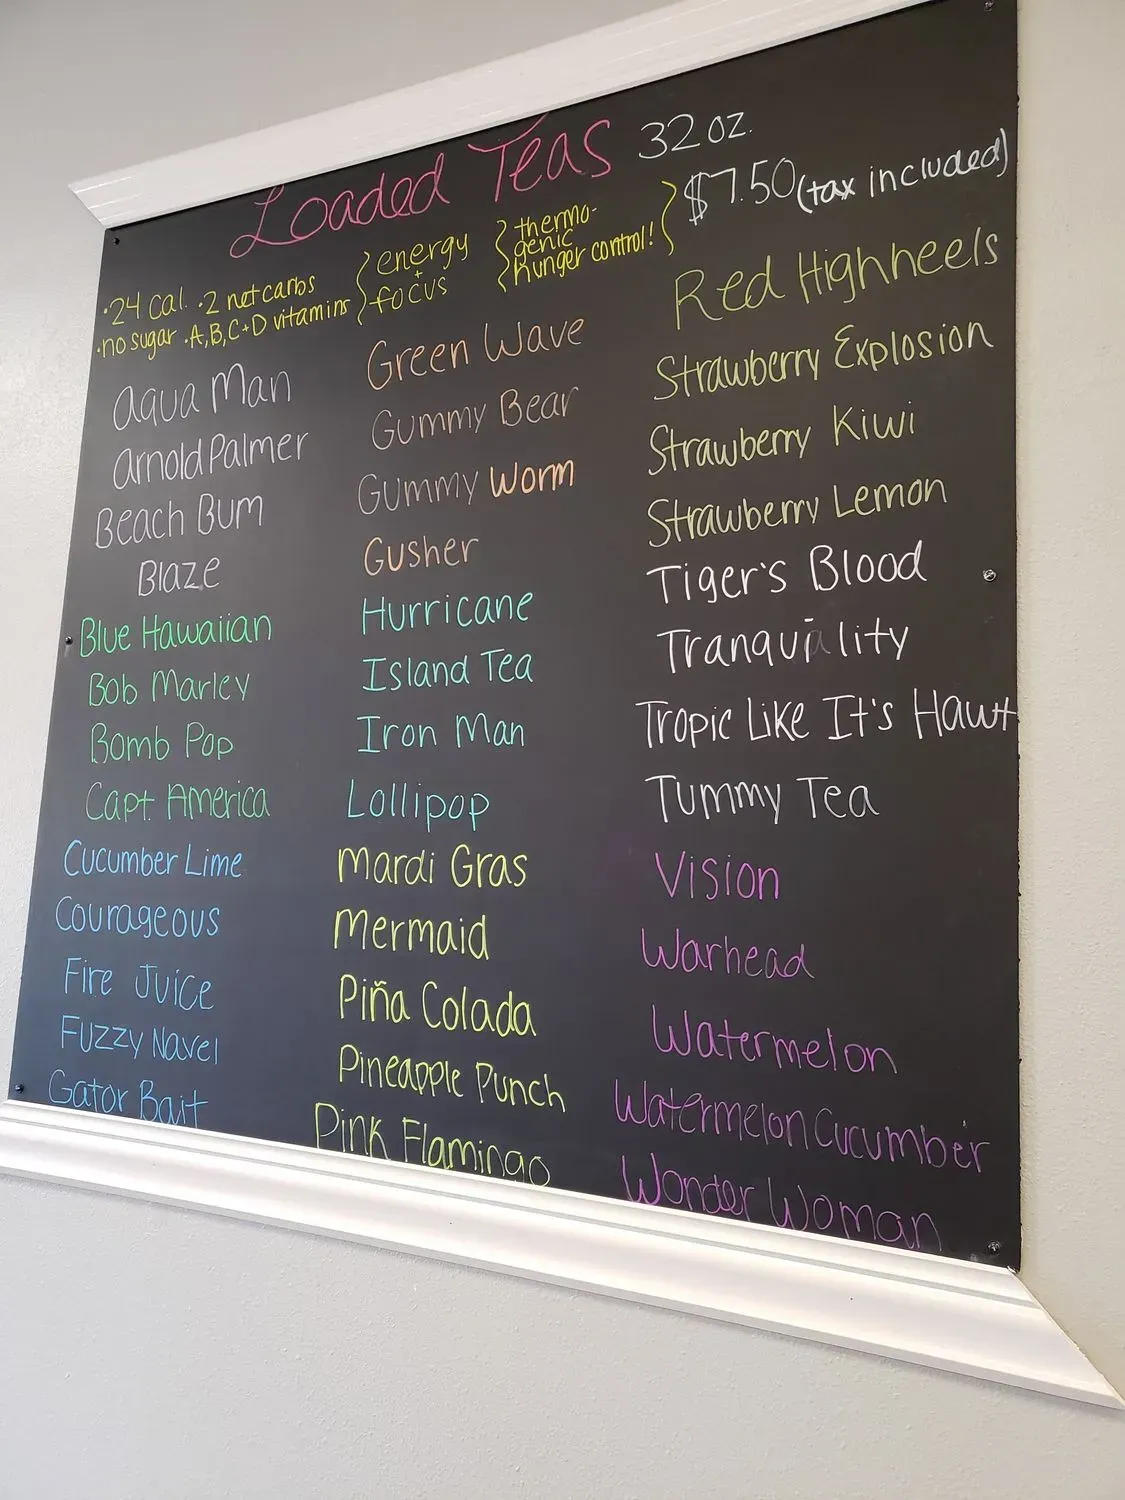 Loaded Teas 32 oz.
$7.50 (tax included)
·24 Cal. ·2 net carbs
·no sugar ·A,B,C+D vitamins
energy
+
focus
thermo-
genic
hunger control!
Aqua Man
Arnold Palmer
Beach Bum
Blaze
Blue Hawaiian
Bob Marley
Bomb Pop
Capt. America
Cucumber Lime
Courageous
Fire Juice
Fuzzy Navel
Gator Bait
Green Wave
Gummy Bear
Gummy Worm
Gusher
Hurricane
Island Tea
Iron Man
Lollipop
Mardi Gras
Mermaid
Piña Colada
Pineapple Punch
Pink Flamingo
Red Highheels
Strawberry Explosion
Strawberry Kiwi
Strawberry Lemon
Tiger's Blood
Tranquility
Tropic Like It's Hawt
Tummy Tea
Vision
Warhead
Watermelon
Watermelon Cucumber
Wonder Woman